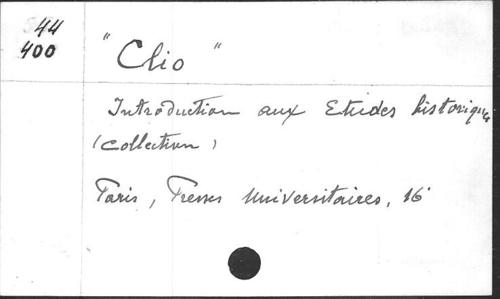 44
400
"Clio"
Introduction aux Etudes historiques
(Collection)
Paris, Presses Universitaires, 16°